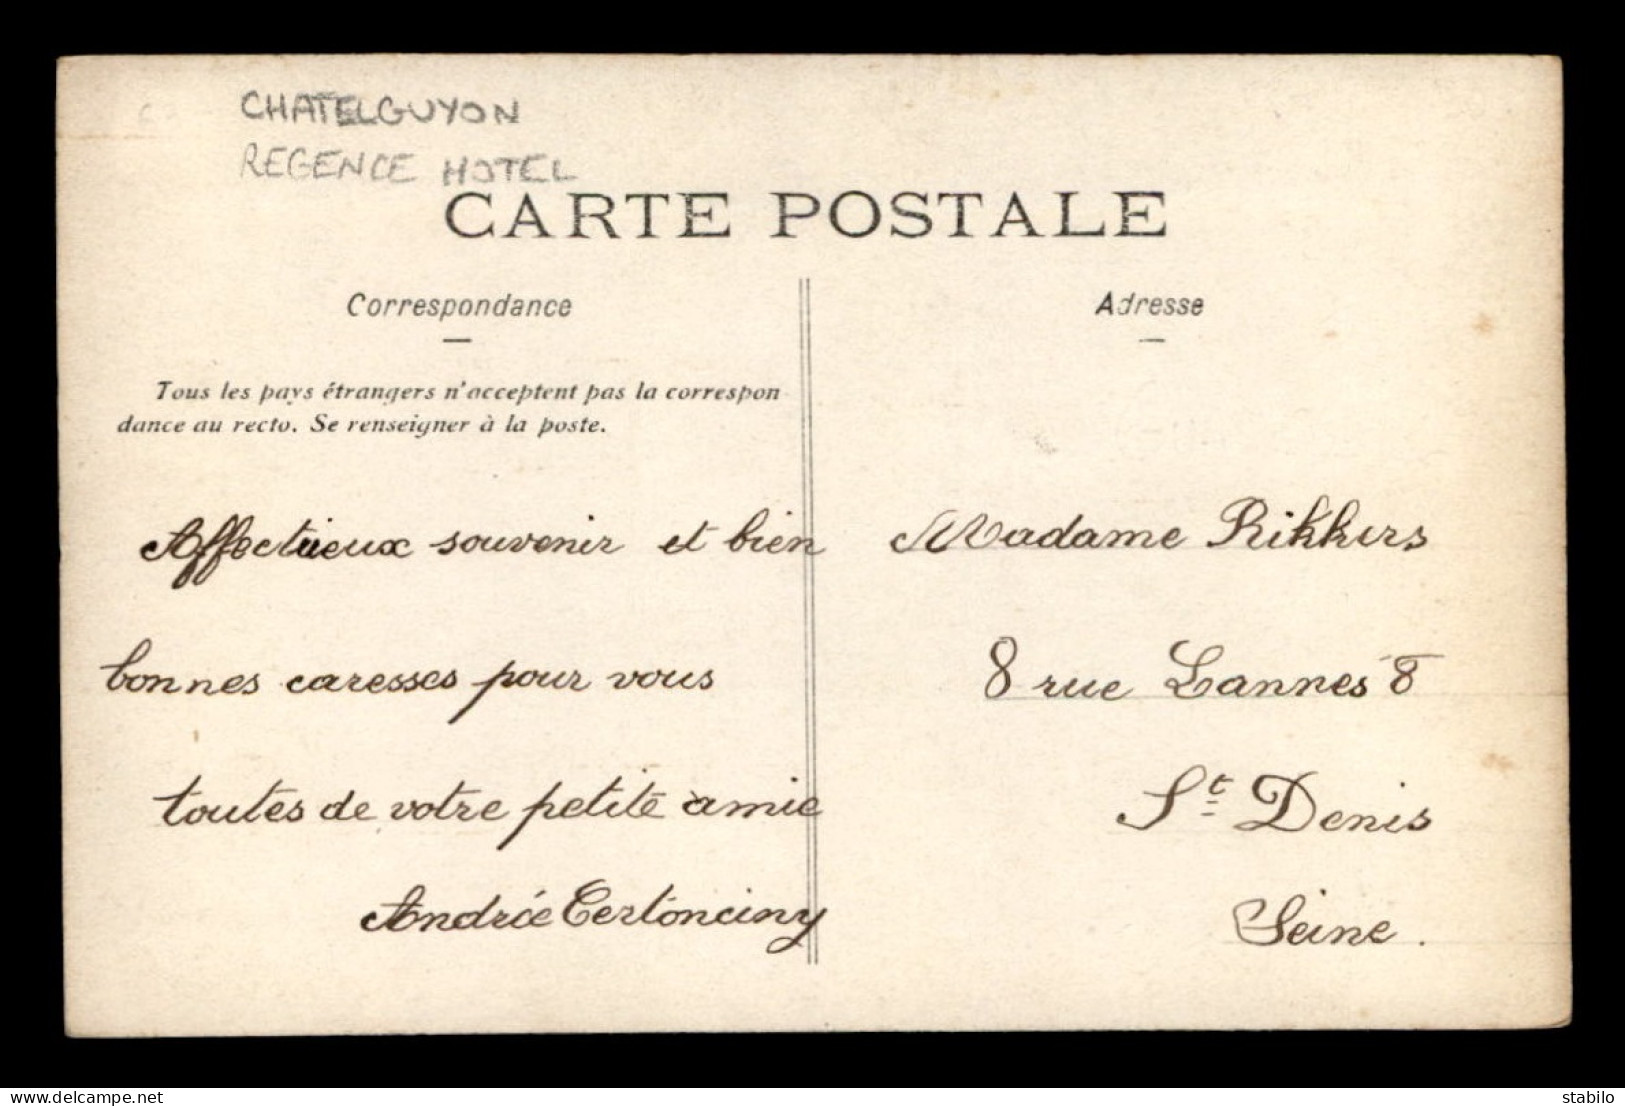 CHATELGUYON
REGENCE HOTEL
CARTE POSTALE
Correspondance
Tous les pays étrangers n'acceptent pas la correspon
dance au recto. Se renseigner à la poste.
Affectueux souvenir et bien
bonnes caresses pour vous
toutes de votre petite amie
Andrée
Adresse
Madame Rikkers
8 rue Lannes 8
St Denis
Seine.
delcampe.net
stobilo